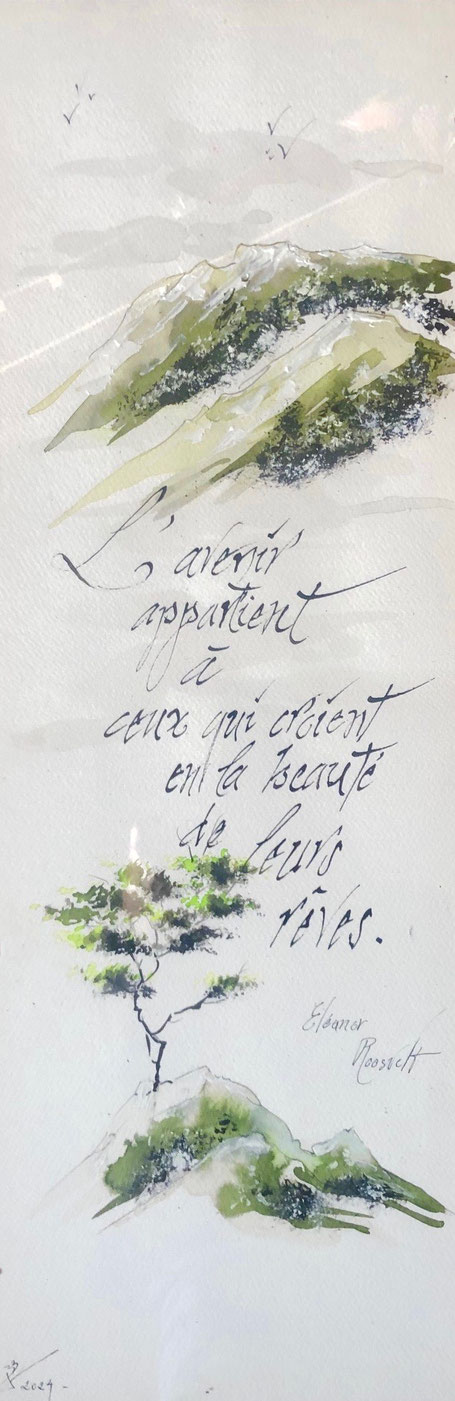 L'avenir
appartient
à
ceux qui croient
en la beauté
de leurs
rêves.
Eléanor
Roosvelt
2024